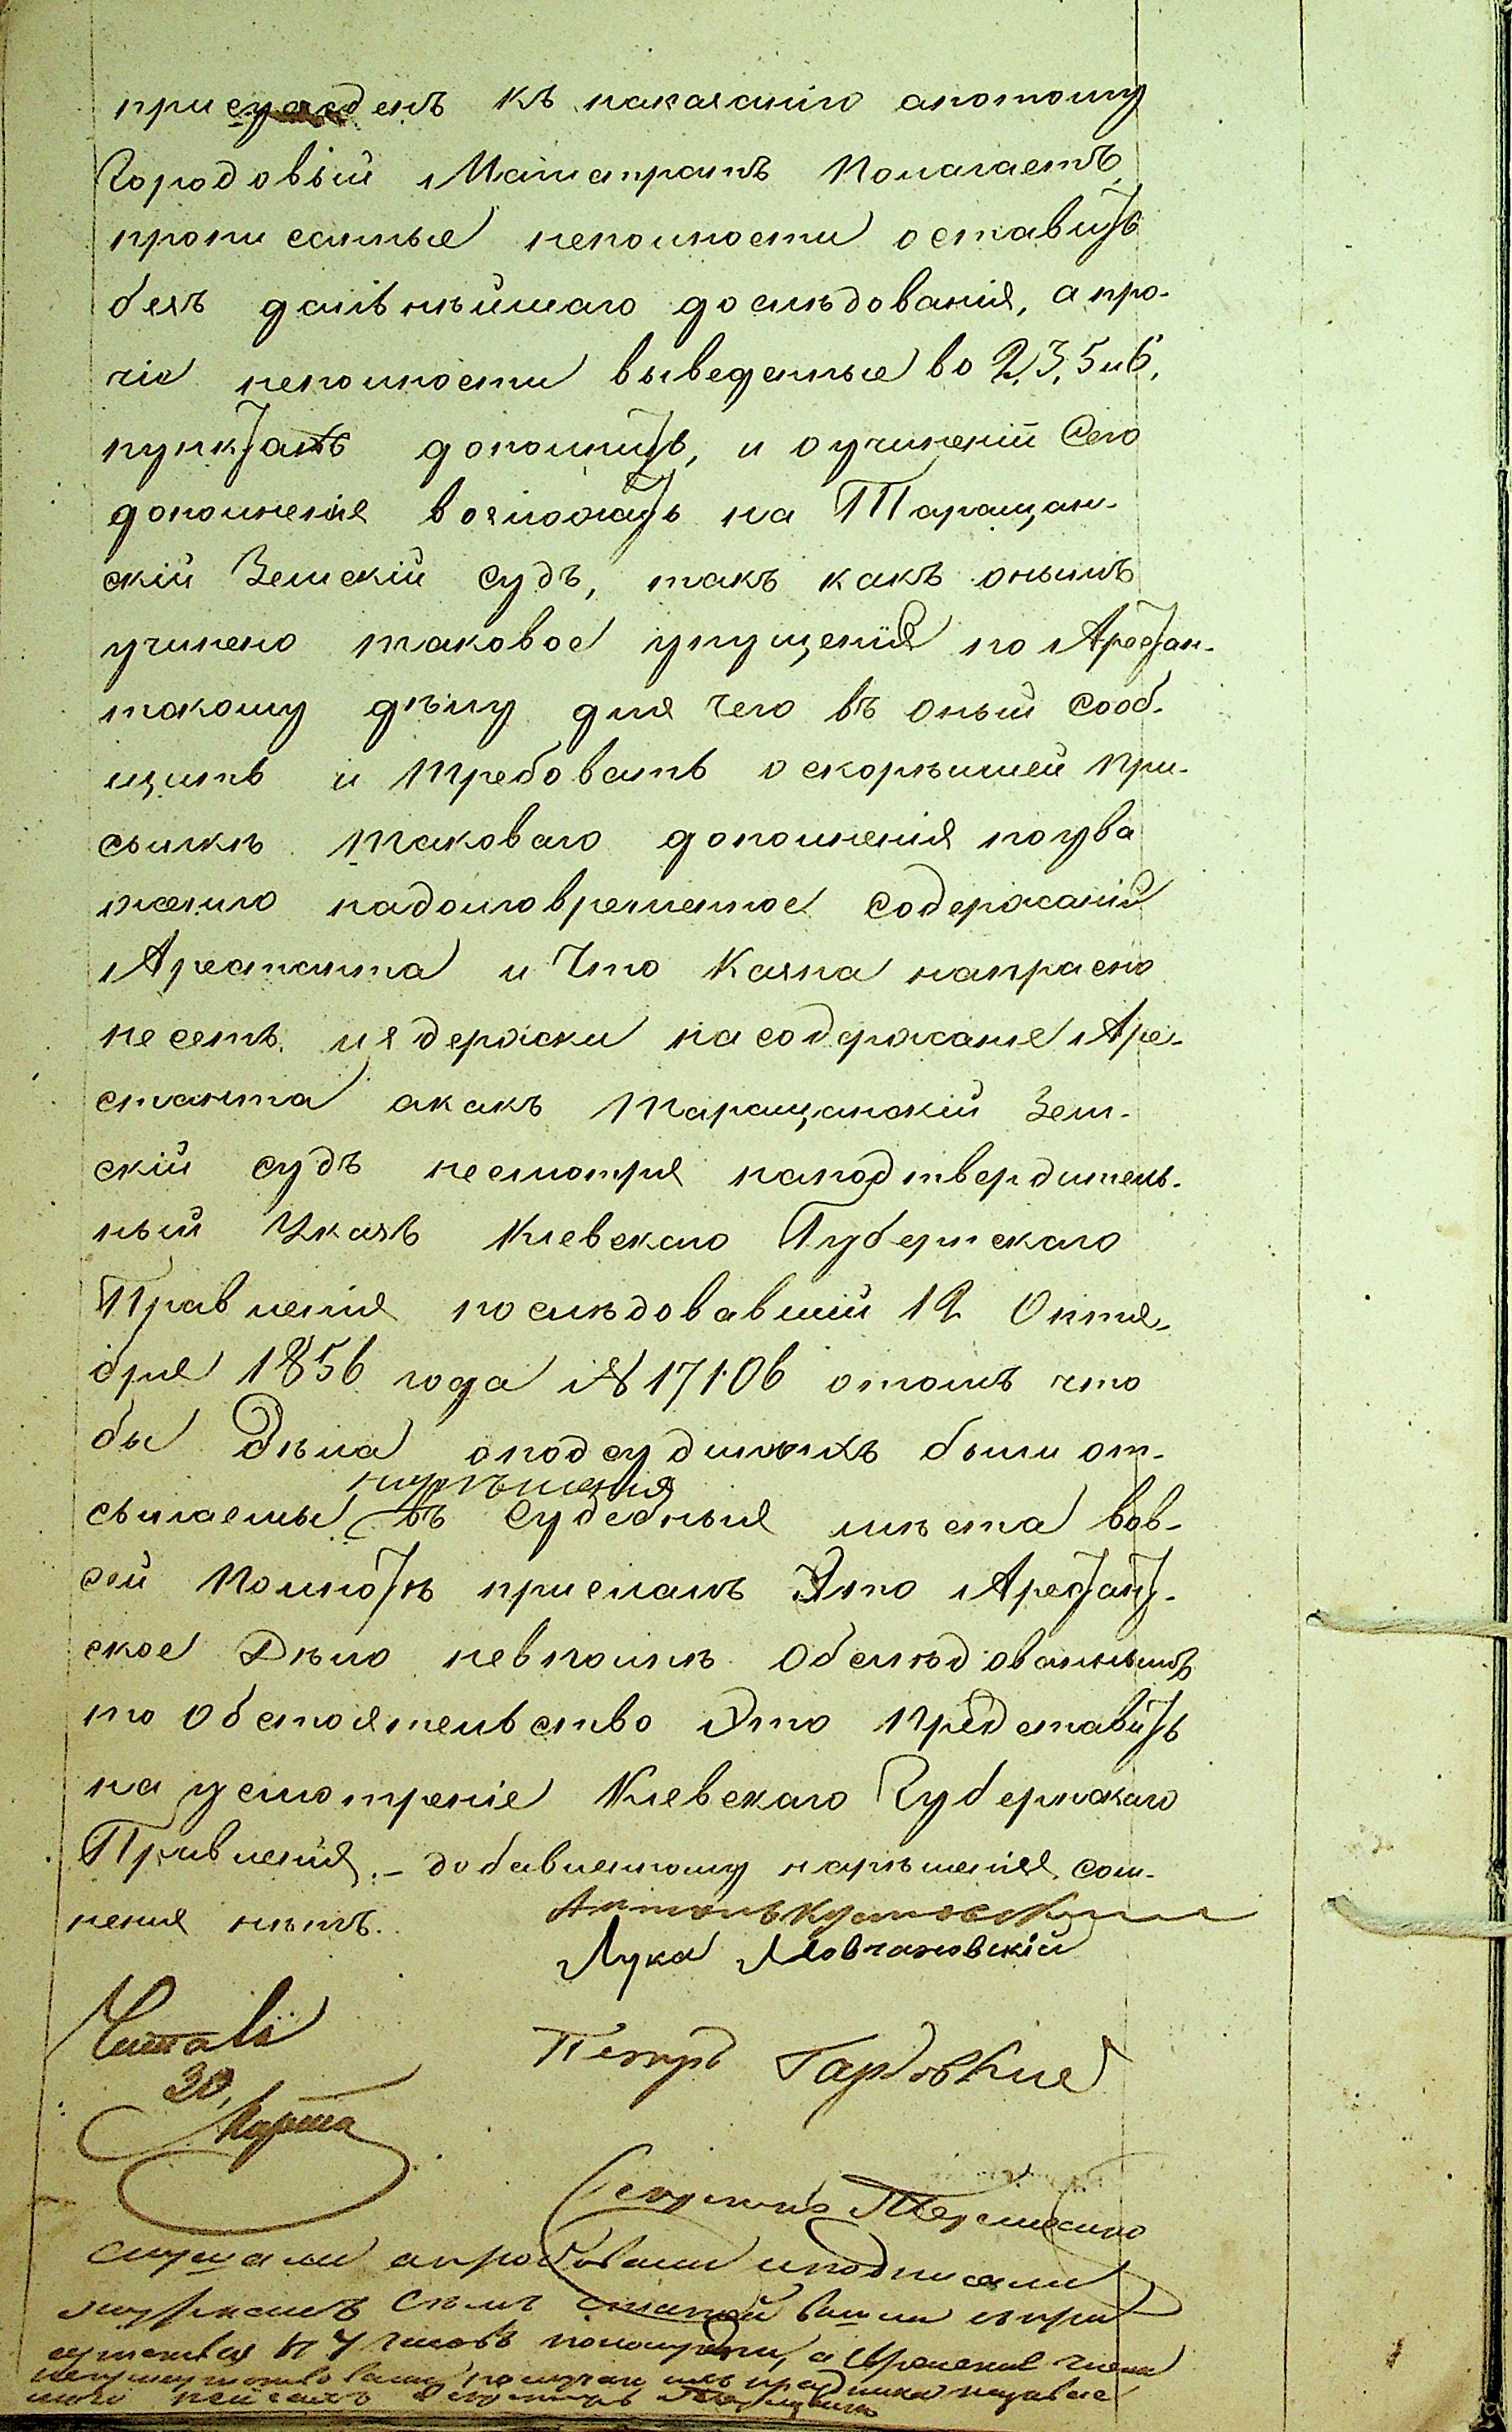 присужденъ къ наказанію апотому
Городовый Магистратъ Полагаетъ
прописанные неполности оставить
безъ дальнѣйшаго дослѣдованія, а про-
чіе неполности выведенные во 2, 3, 5 и 6,
пунктахъ дополнить, и о учиненіи Сего
дополненія возложить на Таращан-
скій Земскій Судъ, такъ какъ онымъ
учинено таковое упущеніе по Арестан-
тскому дѣлу для чего въ оный сооб-
щить и требовать о скорѣйшей при-
сылкѣ таковаго дополненія поува
женію надолговременное содержаніи
Арестанта и Что Казна напрасно
несетъ издержки на содержаніе Аре-
станта а какъ Таращанскій Зем-
скій судъ несмотря наподтвердитель-
ный Указъ Кіевскаго Губернскаго
Правленія послѣдовавшій 12 Октя-
бря 1856 года № 17106 отомъ что
бы Дѣла оподсудимыхъ были от-
нарѣшенія
сылаемы въ Судебныя мѣста вов-
сей Полнотѣ прислалъ Это Арестант-
ское Дѣло невполнѣ Обслѣдованнымъ
то Обстоятельство Это представить
на усмотреніе Кіевскаго Губернскаго
Правленія. – добавленному нарѣшенія сом-
ненія нѣтъ.
Лука Мовчановскій
Читалъ
30,
Марта
Петръ
слушали апробовали иподписали